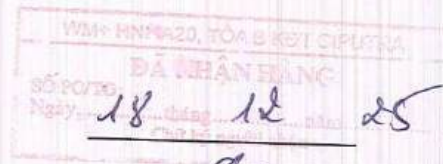 WM+ HNI A20, TÒA B KĐT CIPUTRA
ĐÃ NHẬN HÀNG
SỐ PO/TO:
Ngày 18 tháng 12 năm 25